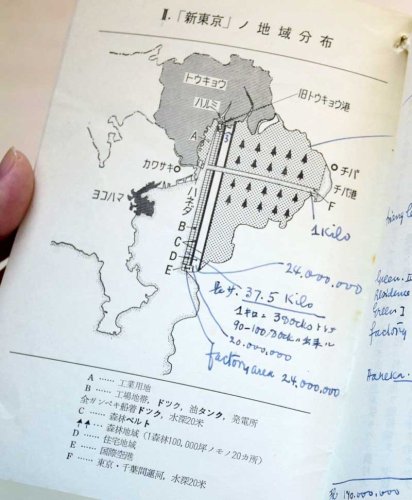 Ⅱ.「新東京」ノ地域分布
トウキョウ
ハルミ
旧トウキョウ港
A
3
カワサキ
チバ
チバ港
F
ハネダ
ヨコハマ
B
C
D
E
1 Kilo
24.000.000
長サ. 37.5 Kilo
90-100. Dock
20.000.000
factory area 24.000.000
Green. I
Residence
Green I
factory
Haneka.
A …… 工業用地
B …… 工場地帯, ドック, 油タンク, 発電所
全ガンペキ船着ドック, 水深20米
C …… 森林ベルト
▲▲…… 森林地域(1森林100,000坪ノモノ20カ所)
D …… 住宅地域
E …… 国際空港
F …… 東京・千葉間運河, 水深20米